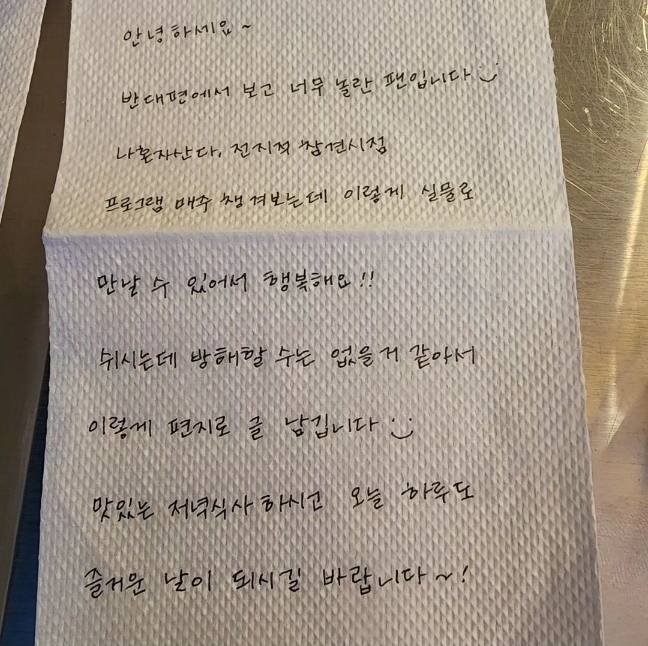 안녕하세요~
반대편에서 보고 너무 놀란 팬입니다 :)
나혼자산다, 전지적 참견시점
프로그램 매주 챙겨보는데 이렇게 실물로
만날 수 있어서 행복해요!!
쉬시는데 방해할 수는 없을거 같아서
이렇게 편지로 글 남깁니다 :)
맛있는 저녁식사 하시고 오늘 하루도
즐거운 날이 되시길 바랍니다~!